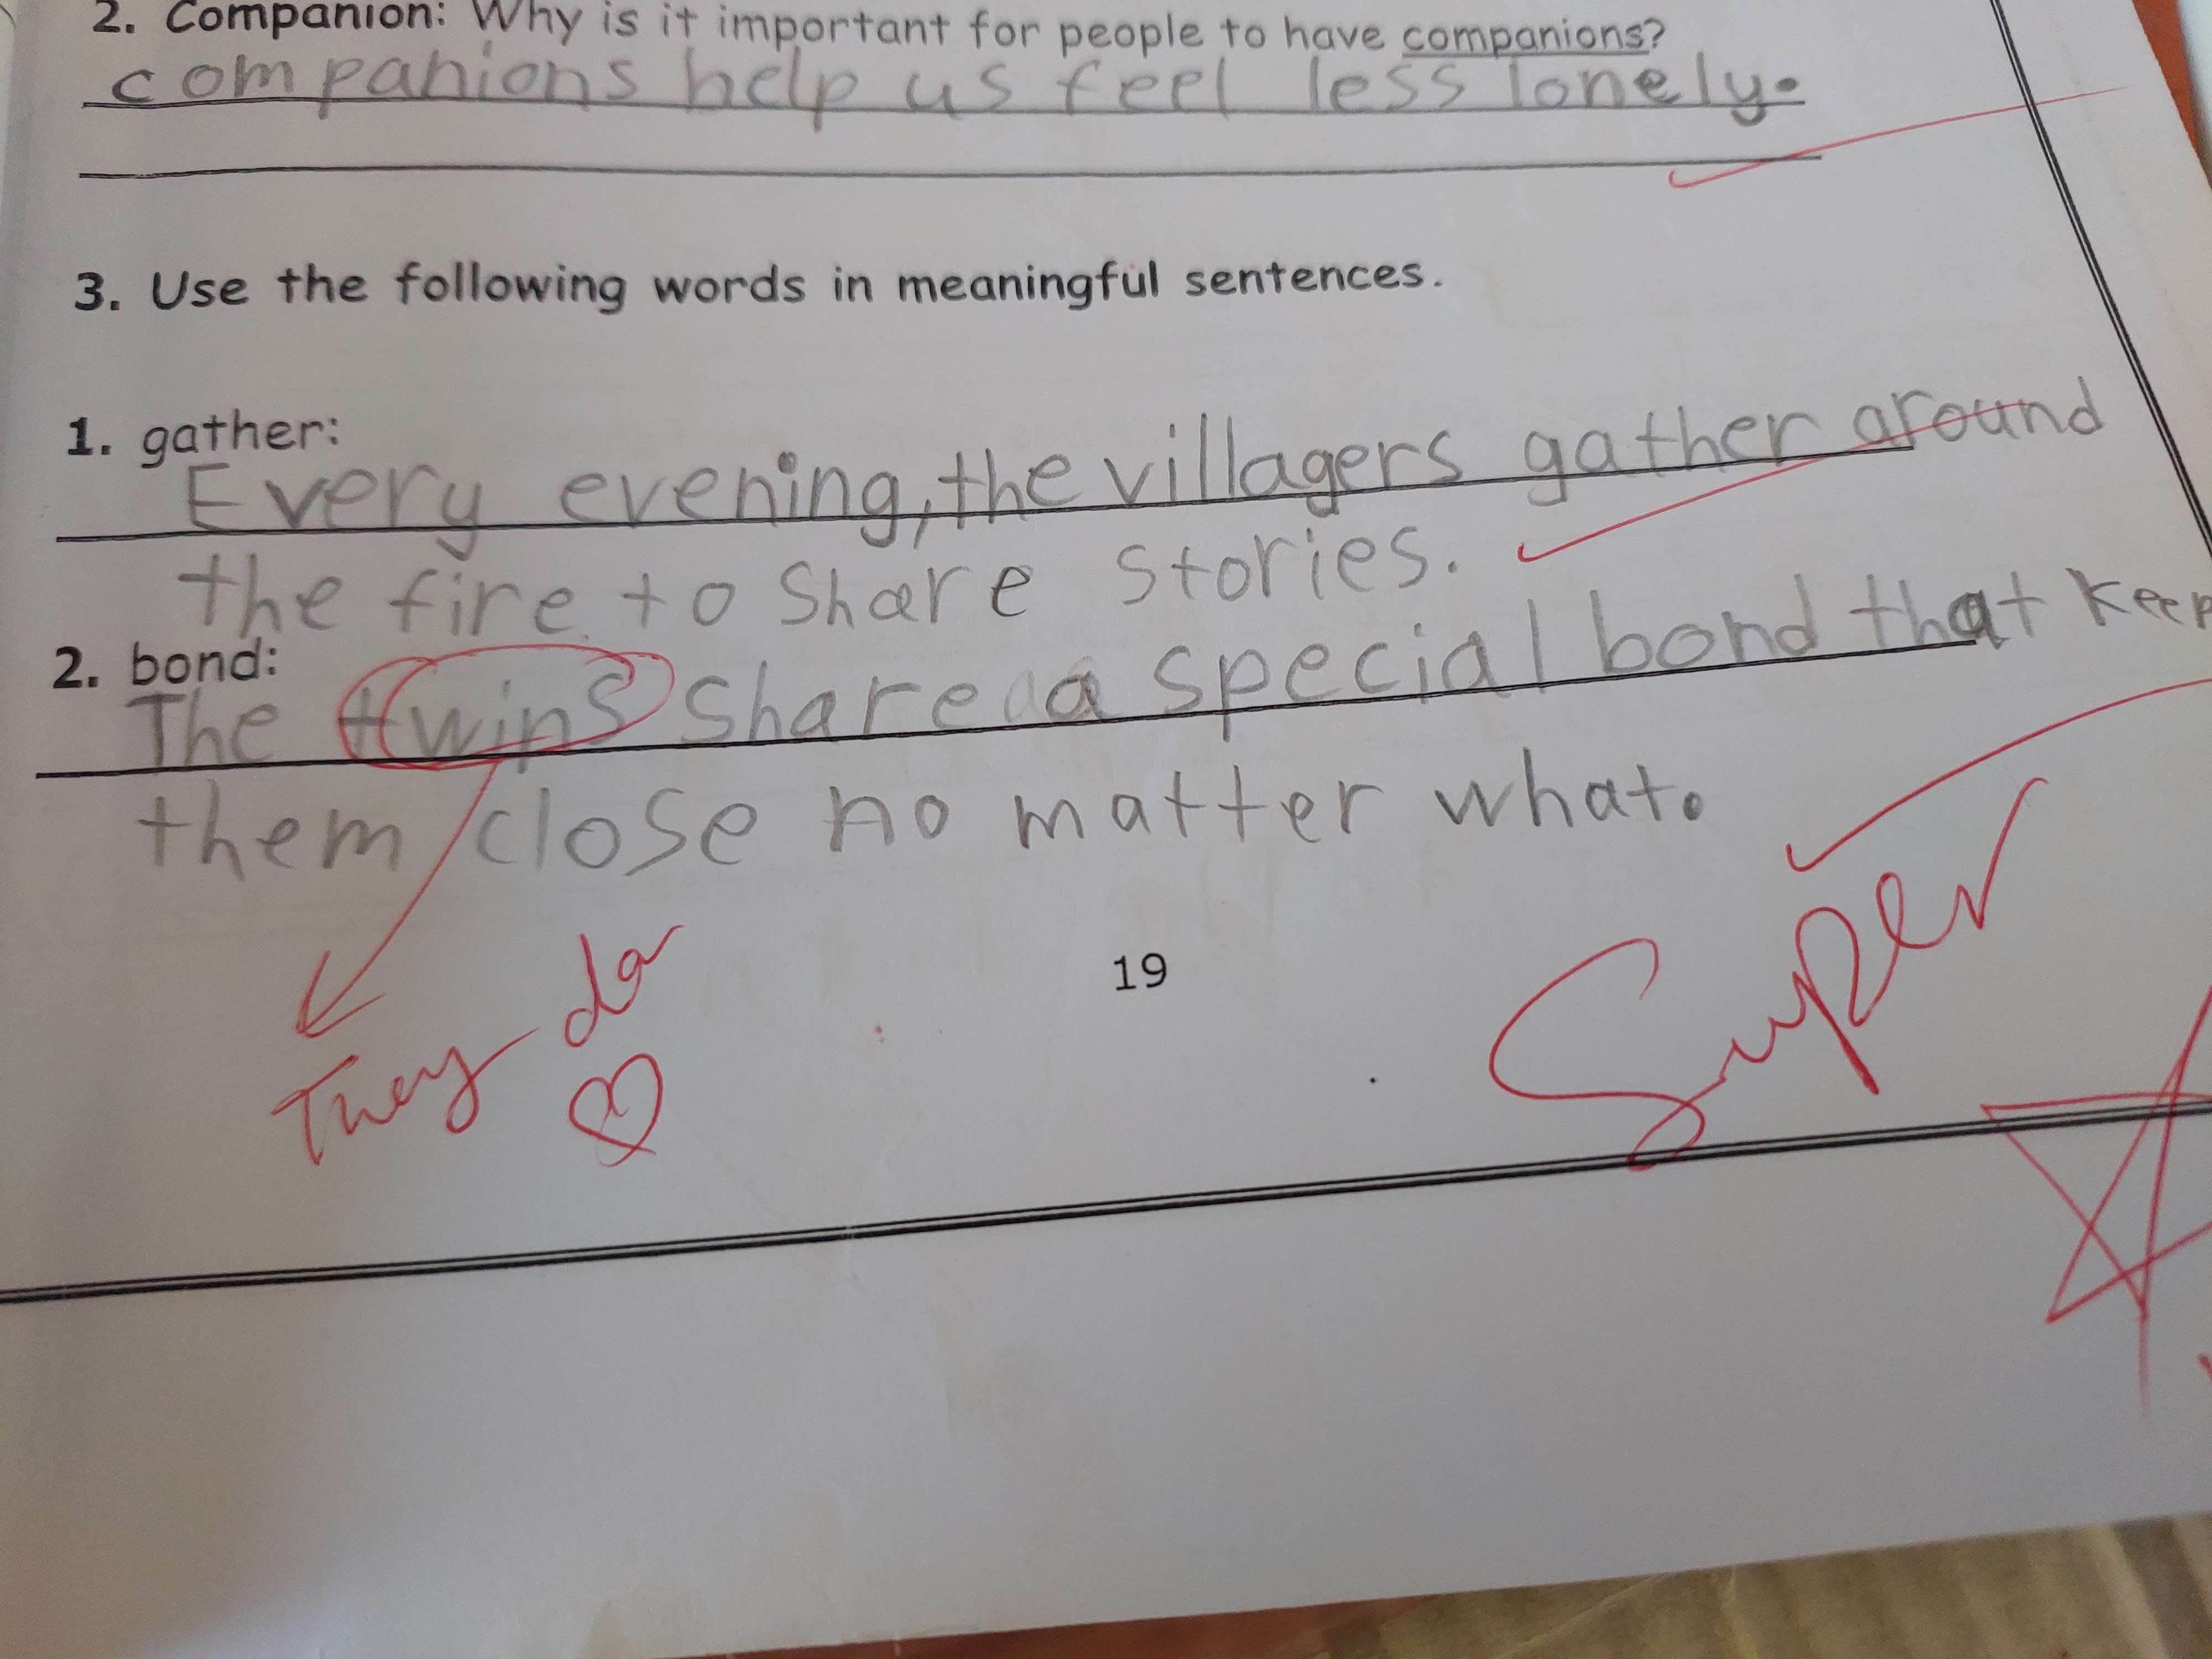 2. Companion: Why is it important for people to have companions?
companions help us feel less lonely.
3. Use the following words in meaningful sentences.
1. gather:
Every evening, the villagers gather around
the fire to Share stories.
2. bond:
The twins share a special bond that keep
them close no matter what.
They do
19
Super